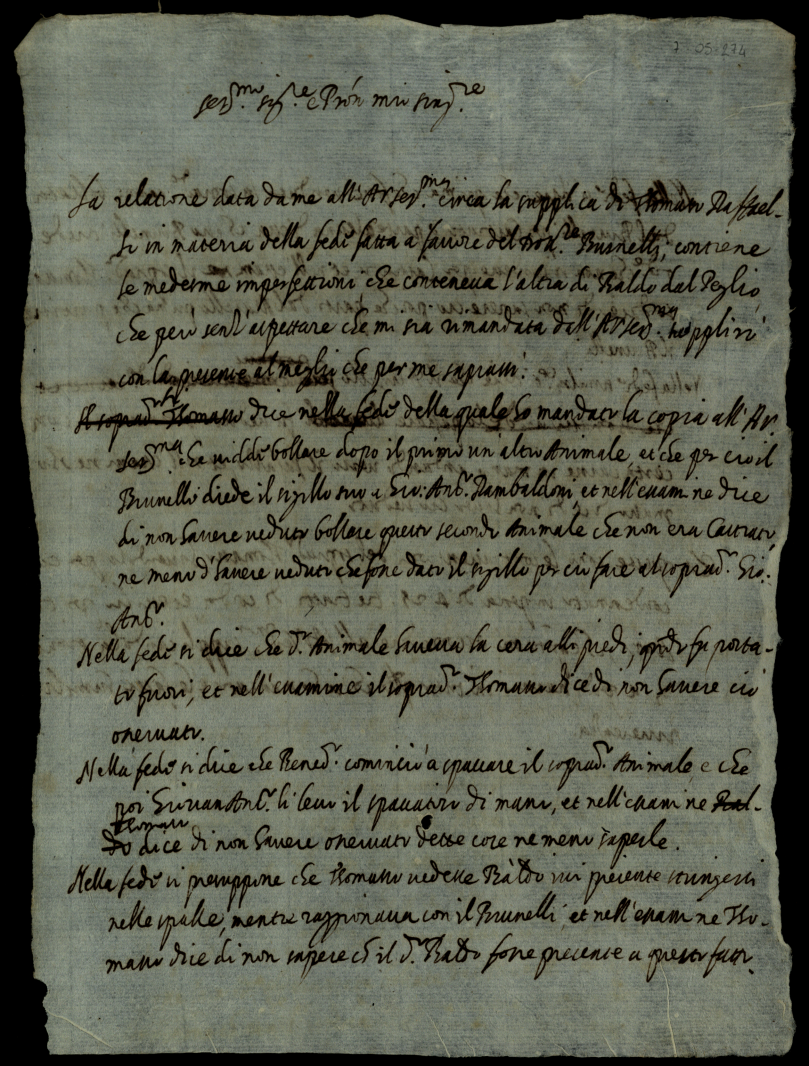 7 05-274
Ser.mo Sig.re e Pron mio sing.re
La relatione data da me all'A. V. Ser.ma circa la supplica di Thomaso Raffael-
li in materia della fede fatta a favore del Dott.re Brunelli, contiene
le medesme imperfettioni che conteneva l'altra di Baldo dal Peglio
che però senz'aspettare che mi sia rimandata dall'A. V. Ser.ma supplirò
con la presente al meglio che per me saprassi.
Il soprad.o Thomaso dice nella fede della quale ho mandato la copia all'A. V.
Ser.ma che viddi bollare dopo il primo un altro Animale, et che per ciò il
Brunelli diede il sigillo suo a Gio: Ant.o Rambaldoni et nell'examine dice
di non havere veduto bollare questo secondo Animale che non era Castrato,
ne meno d'havere veduto che fosse dato il sigillo per ciò fare al soprad.o Gio:
Ant.o
Nella fede si dice che d.o Animale haveva la cera alli piedi, quando fu porta-
to fuori, et nell'examine il soprad.o Thomaso dice di non havere ciò
osservato.
Nella fede si dice che Bened.o cominciò a spaccare il soprad.o Animale, e che
poi Giovan Ant.o li levò il spaccatoro di mano, et nell'examine Bal-
do Thomaso dice di non havere osservato dette cose ne meno saperle.
Nella fede si presuppone che Thomaso vedesse Baldo ivi presente stringersi
nelle spalle, mentre raggionava con il Brunelli et nell'examine Tho-
maso dice di non sapere ch'il d.o Baldo fosse presente a questo fatto.